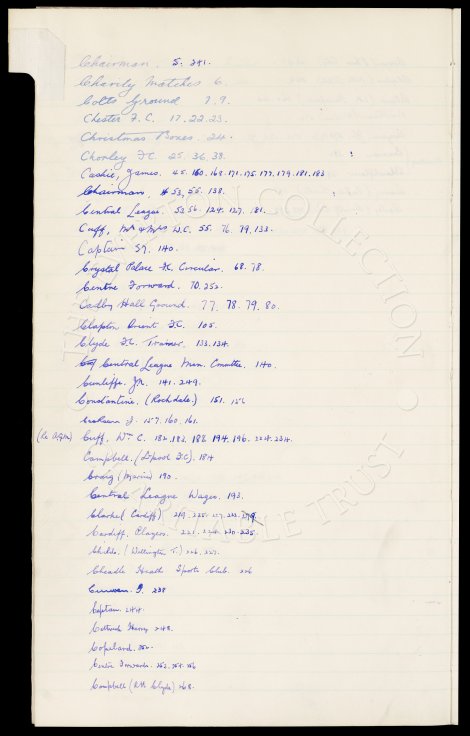 Chairman. 5. 241.
Charity Matches 6.
Colts Ground 7.9.
Chester F.C. 17.22.23.
Christmas Boxes. 24.
Chorley F.C. 25. 36. 38.
Cassie, James. 45. 160. 169. 171. 175. 177. 179. 181. 183
Chairman, 53, 55. 138.
Central League. 53 56. 124. 127. 181.
Cuff, Mr & Mrs W.C. 55. 76. 79. 133.
Captain 57. 140.
Crystal Palace F.C. Circular. 68. 78.
Centre Forward. 70. 252.
Cadby Hall Ground. 77. 78. 79. 80.
Clapton Orient F.C. 105.
Clyde F.C. Trainer. 133. 134.
Central League Man. Committee. 140.
Cunliffe. J.N. 141. 249.
Constantine. (Rochdale.) 151. 152
J. 157. 160. 161.
(Re A.G.M.) Cuff, Wm C. 182. 183. 188. 194. 196. 224. 234.
Campbell. (L'pool F.C.) 184
Craig (Marine) 190.
Central League Wages. 193.
Clarke (Cardiff) 219. 225. 227. 232.
Cardiff. Players. 221. 224. 230. 235.
Childs. (Wellington T.) 226. 227.
Cheadle Heath Sports Club. 226
Curwen. J. 238
Captain. 244.
Henry. 248.
Copeland. 252.
Centre Forwards. 252. 254. 256
Campbell (Clyde) 268.
THE COLLECTION
CHARITABLE TRUST